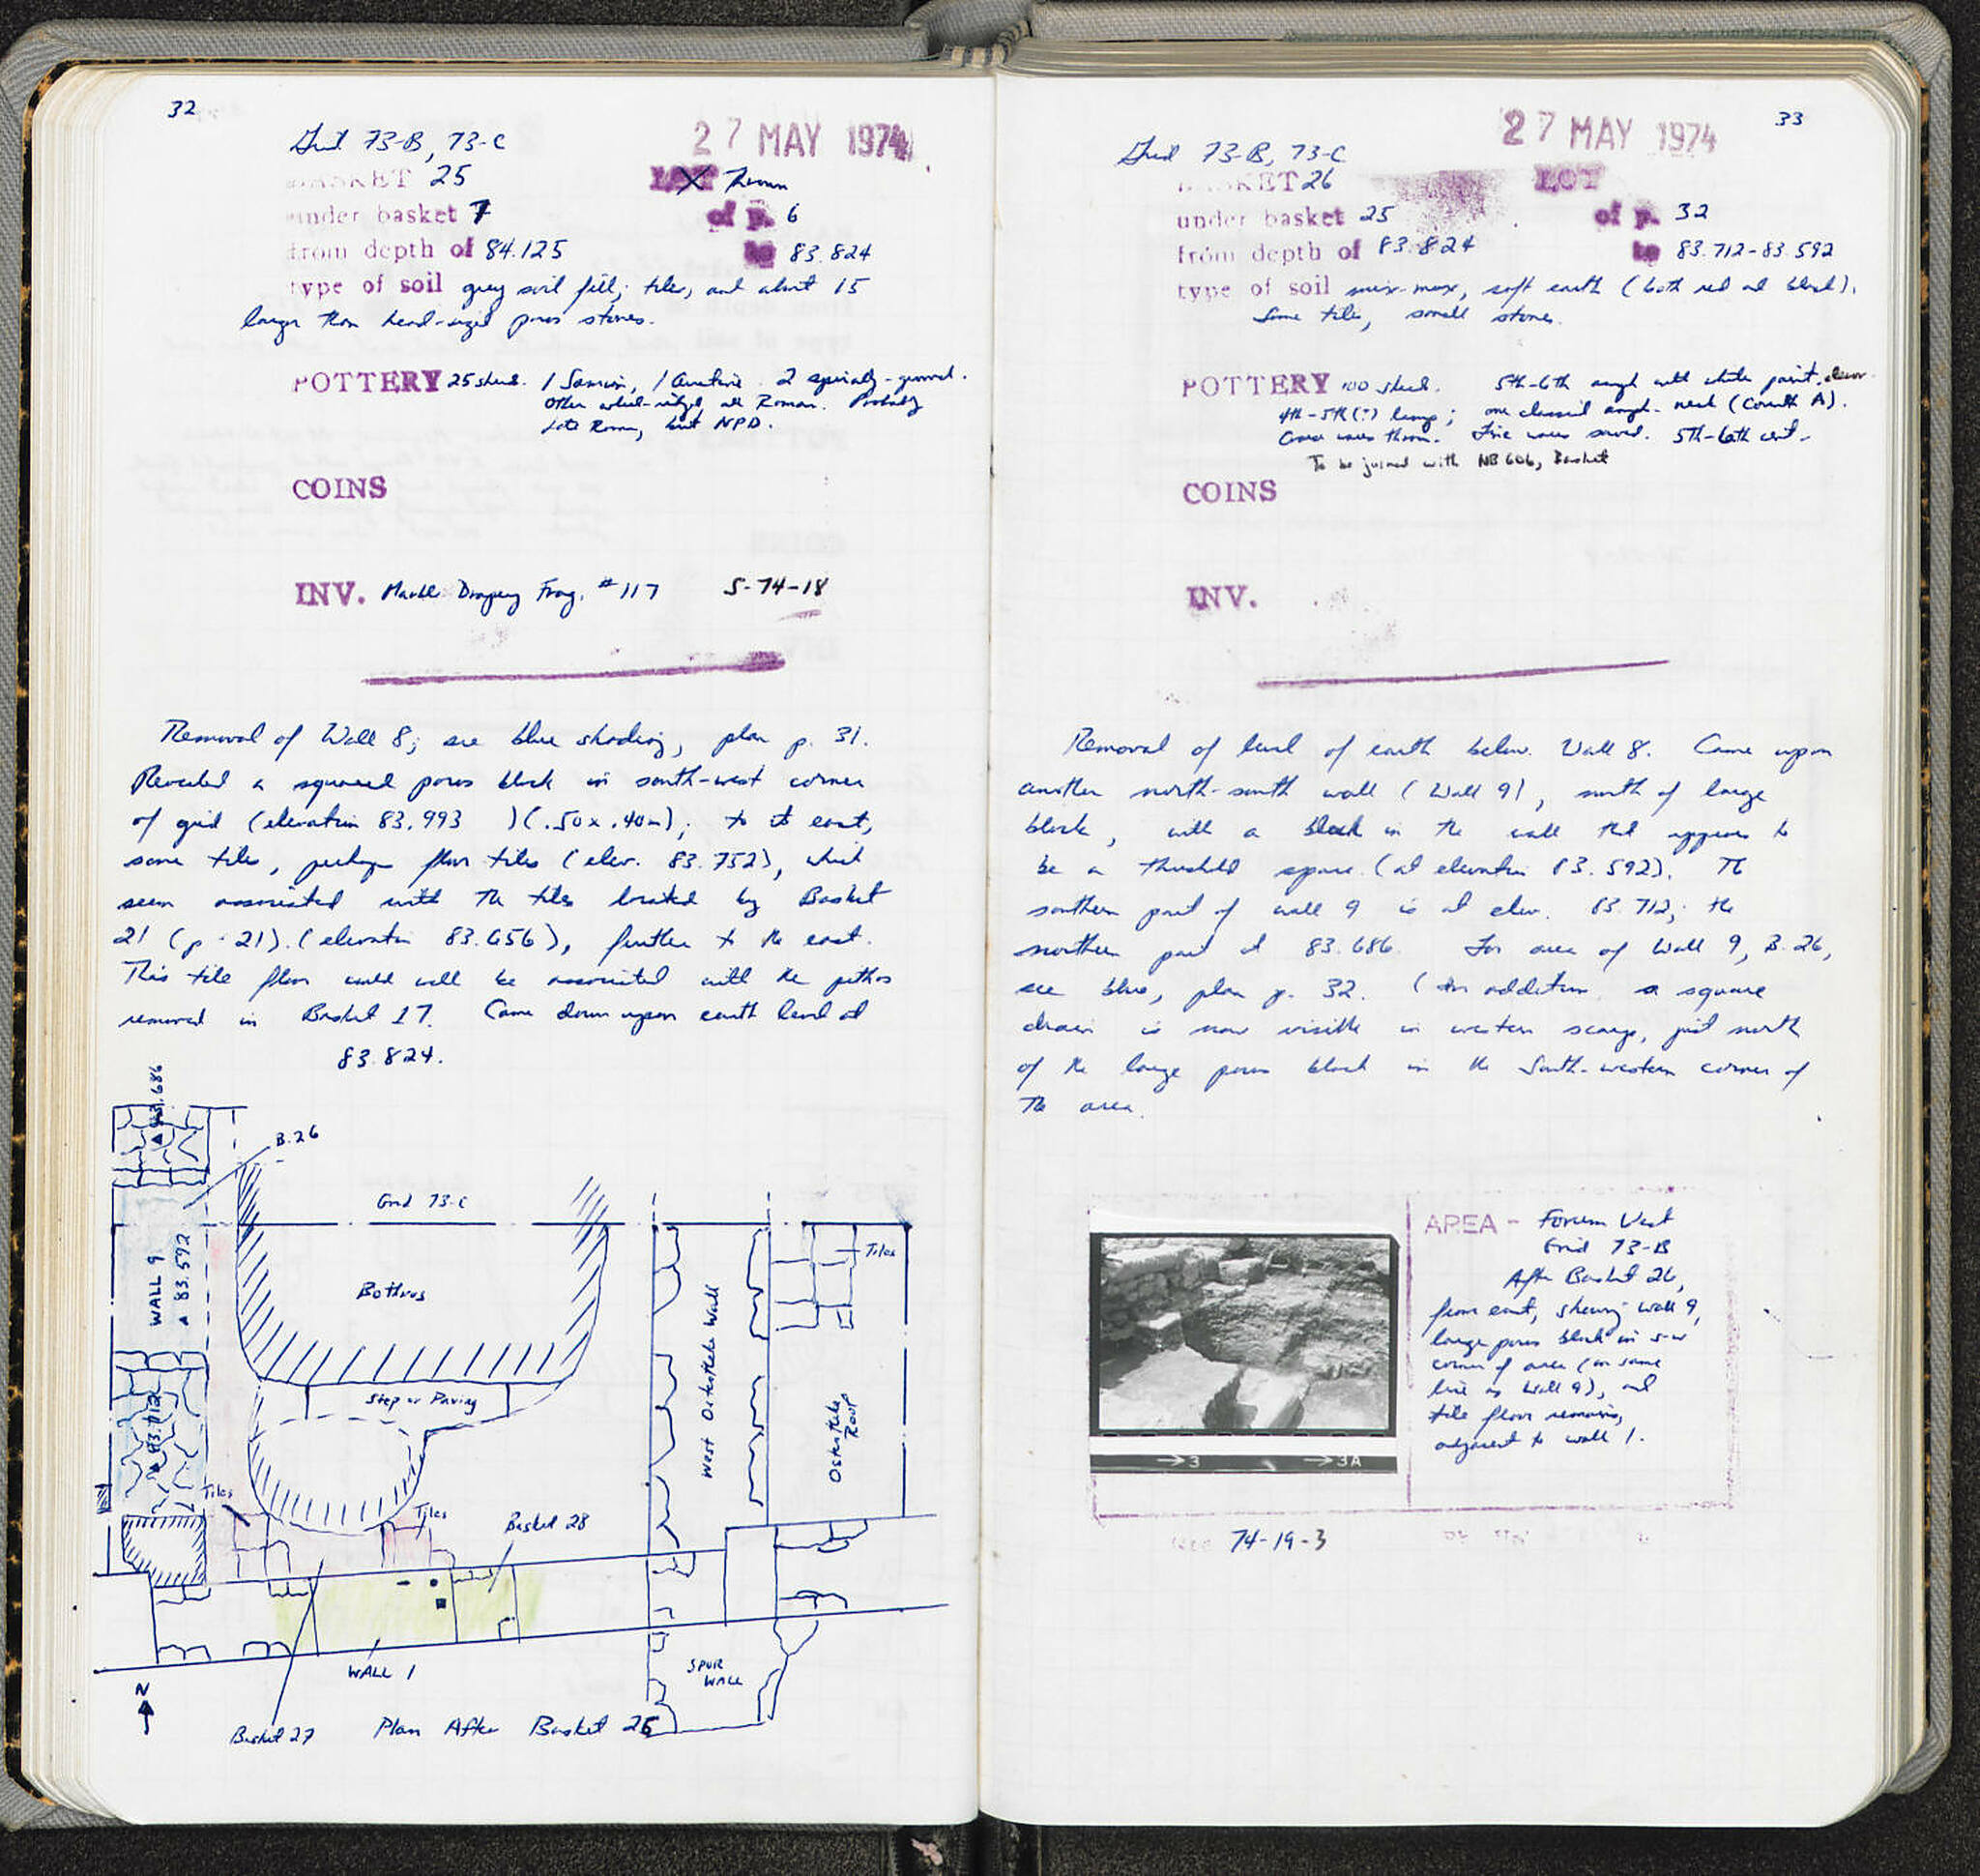 32
Grid 73-B, 73-C
27 MAY 1974
BASKET 25
LOT X Thrown
under basket 7
of p. 6
from depth of 84.125
to 83.824
type of soil grey soil fill; tiles, and about 15
larger than head-sized poros stones.
POTTERY 25 sherds. 1 Samian, 1 Arretine. 2 spirally-grooved.
Other wheel-ridged all Roman. Probably
Late Roman, but NPD.
COINS
INV. Marble Drapery Frag. #117 S-74-18
Removal of Wall 8; see blue shading, plan p. 31.
Revealed a squared poros block in south-west corner
of grid (elevation 83.993 )(.50x.40m); to its east,
some tiles, perhaps floor tiles (elev. 83.752), which
seem associated with the tiles located by Basket
21 (p. 21). (elevation 83.656), further to the east.
This tile floor could well be associated with the pithos
removed in Basket 17. Came down upon earth level at
83.824.
83.686
B.26
Grid 73-C
WALL 9
83.592
Bothros
Tiles
West Ostotheke Wall
Step or Paving
Ostotheke Roof
83.712
Tiles
Tiles
Basket 28
WALL 1
SPUR WALL
N
Basket 27
Plan After Basket 26
33
Grid 73-B, 73-C
27 MAY 1974
BASKET 26
LOT
under basket 25
of p. 32
from depth of 83.824
to 83.712-83.592
type of soil mix-max, soft earth (both red and black).
Some tiles, small stones.
POTTERY 100 sherds. 5th-6th amph with white paint.
4th-5th(?) lamp; one classical amph. neck (Corinth A).
Coarse wares thrown. Fine wares saved. 5th-6th cent.
To be joined with NB 606, Basket
COINS
INV.
Removal of level of earth below Wall 8. Came upon
another north-south wall (Wall 9), north of large
block, with a block in the wall that appears to
be a threshold space (at elevation 83.592). The
southern part of wall 9 is at elev. 83.712; the
northern part at 83.686. For area of Wall 9, B.26,
see blue, plan p. 32. (In addition a square
drain is now visible in western scarp, just north
of the large poros block in the South-western corner of
the area.
AREA - Forum West
Grid 73-B
After Basket 26,
from east, showing wall 9,
large poros block in s-w
corner of area (in same
line as Wall 9), and
tile floor remains,
adjacent to wall 1.
→3 →3A
74-19-3